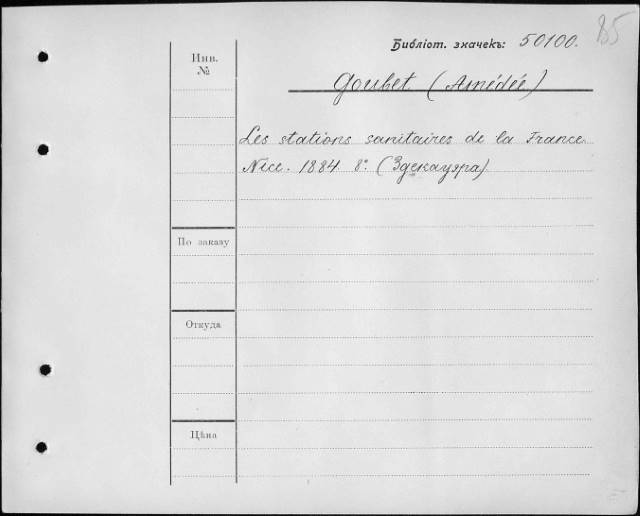 Библіот. значекъ: 50100.
85
Инв. №
Goubet (Amédée)
Les stations sanitaires de la France.
Nice. 1884. 8°. (Здекауэра)
По заказу
Откуда
Цѣна